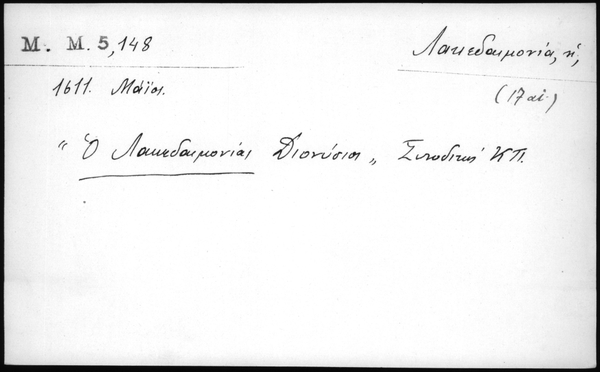 M. M. 5, 148
Λακεδαιμονία, ἡ,
1611. Μάϊος.
(17 αἰ.)
“ Ὁ Λακεδαιμονίας Διονύσιος „ Συνοδικὴ ΚΠ.